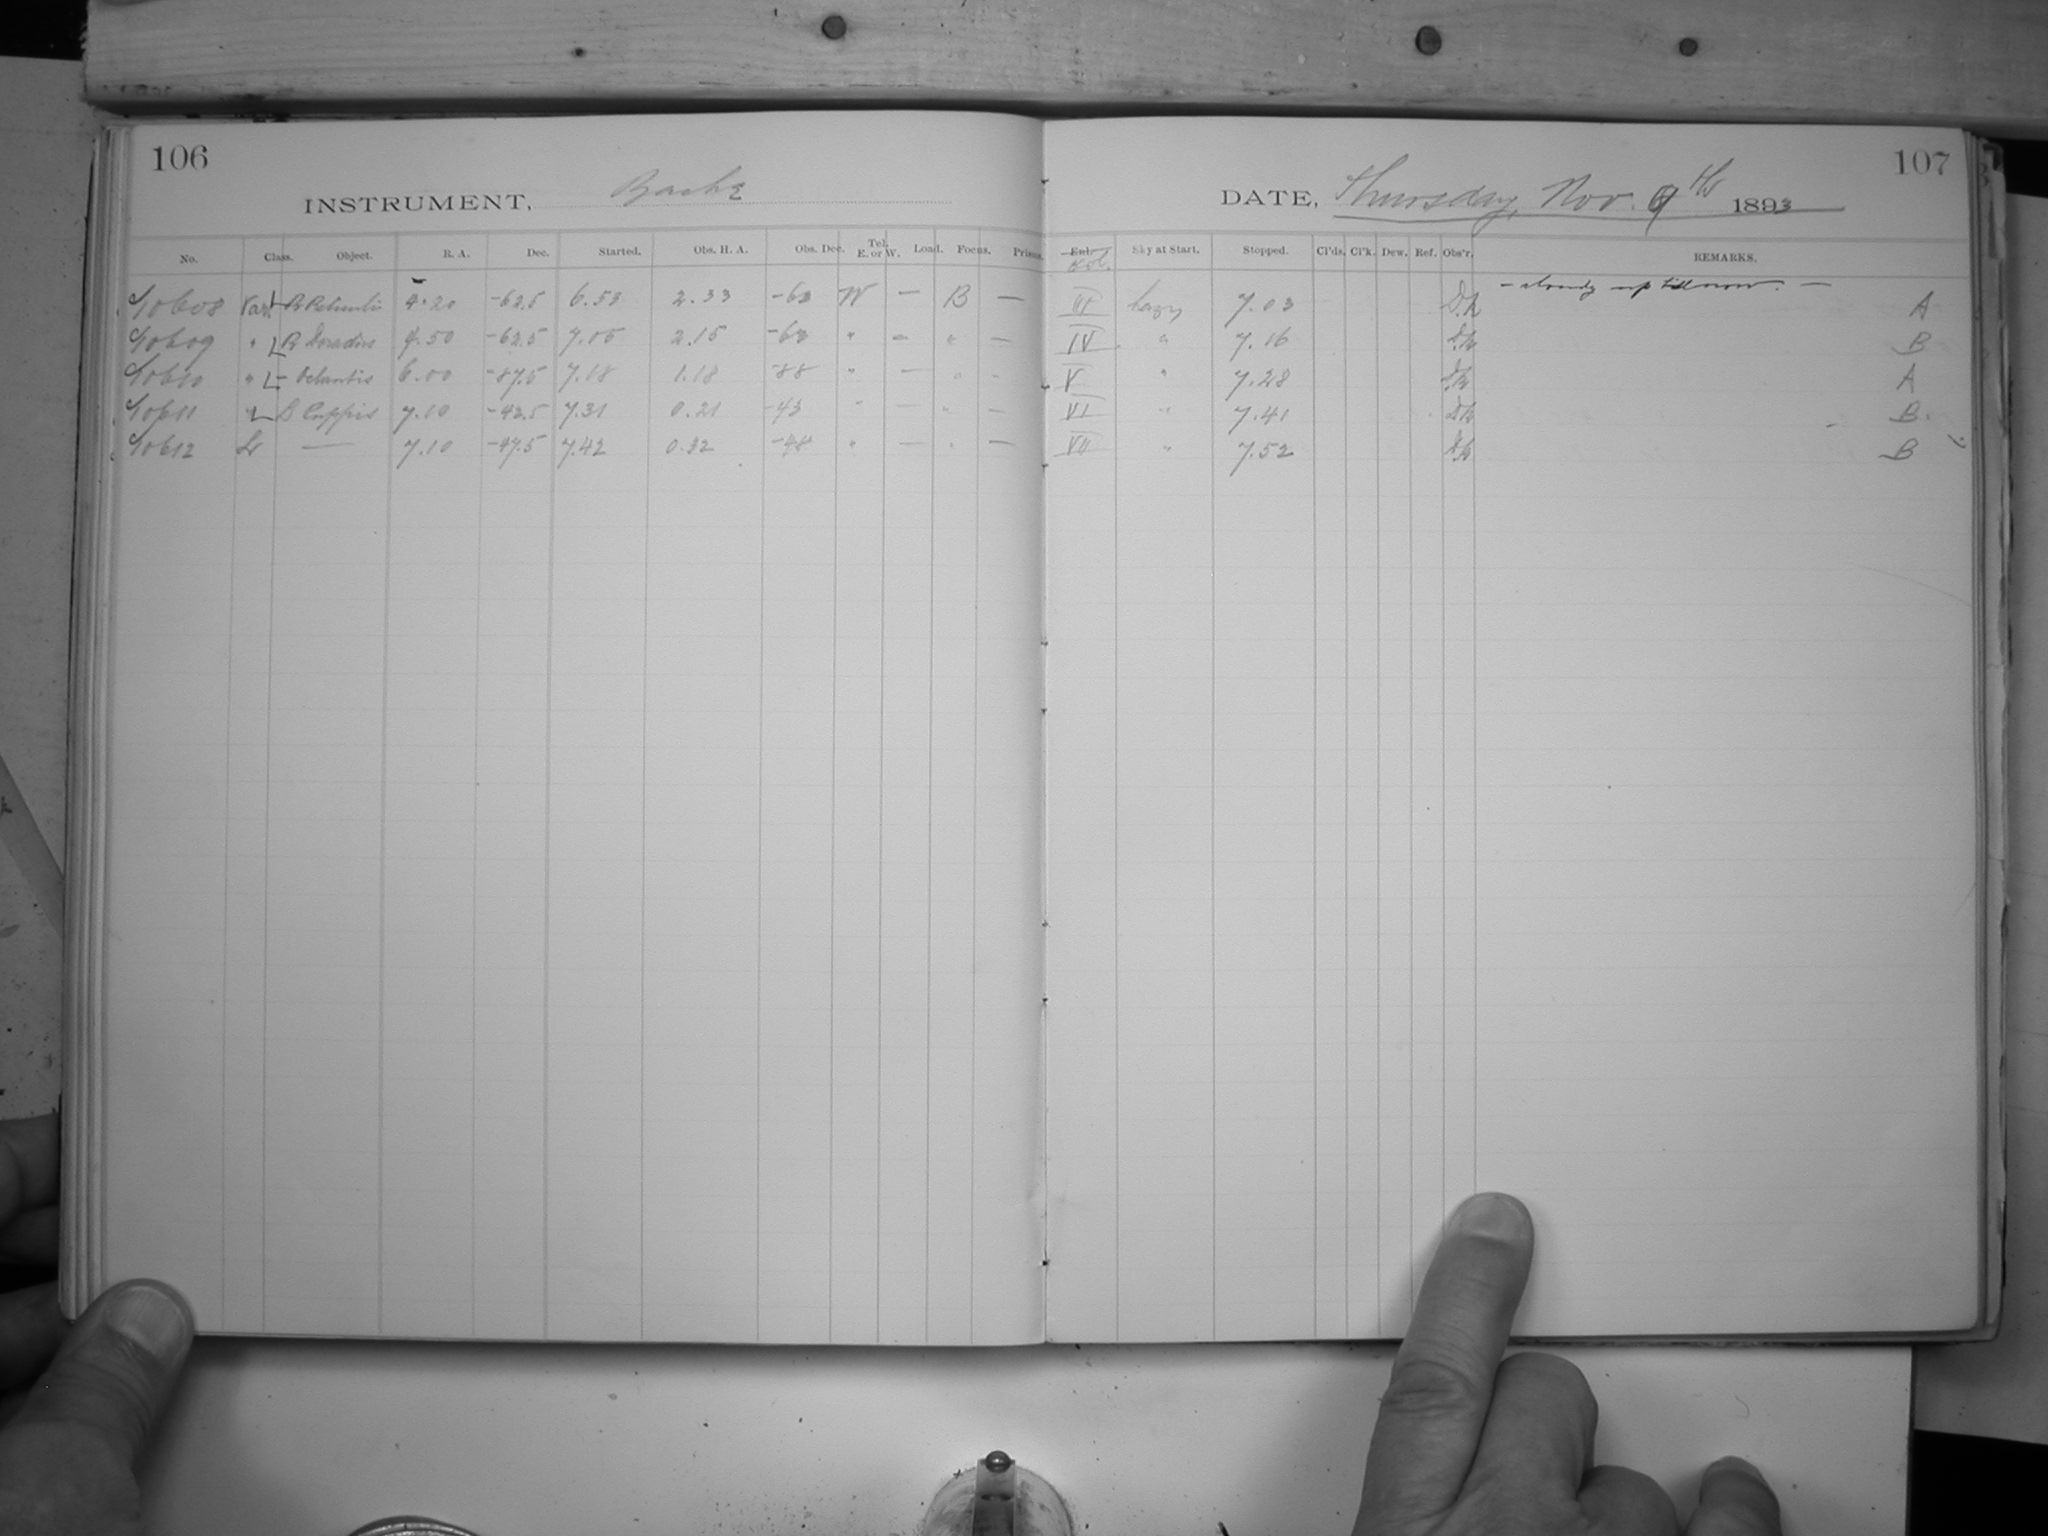 106
INSTRUMENT, Bache
No. Class. Object. R. A. Dec. Started. Obs. H. A. Obs. Dec. Tel. E. or W. Load. Focus. Prisms.
10608 Var. L R Reticuli 4.20 -62.5 6.53 2.33 -63 W — B —
10609 " L R Doradus 4.50 -62.5 7.05 2.15 -63 " — " —
10610 " L - Octantis 6.00 -87.5 7.18 1.18 -88 " — " -
10611 " L Puppis 7.10 -42.5 7.31 0.21 -43 " — " —
10612 — 7.10 -47.5 7.42 0.32 -48 " — " —
107
DATE, Thursday, Nov. 9th 1893
Exp. Sky at Start. Stopped. Cl'ds. Cl'k. Dew. Ref. Obs'r. REMARKS.
- cloudy up till now. -
III hazy 7.03 A
IV " 7.16 B
V " 7.28 A
VI " 7.41 B
VII " 7.52 B